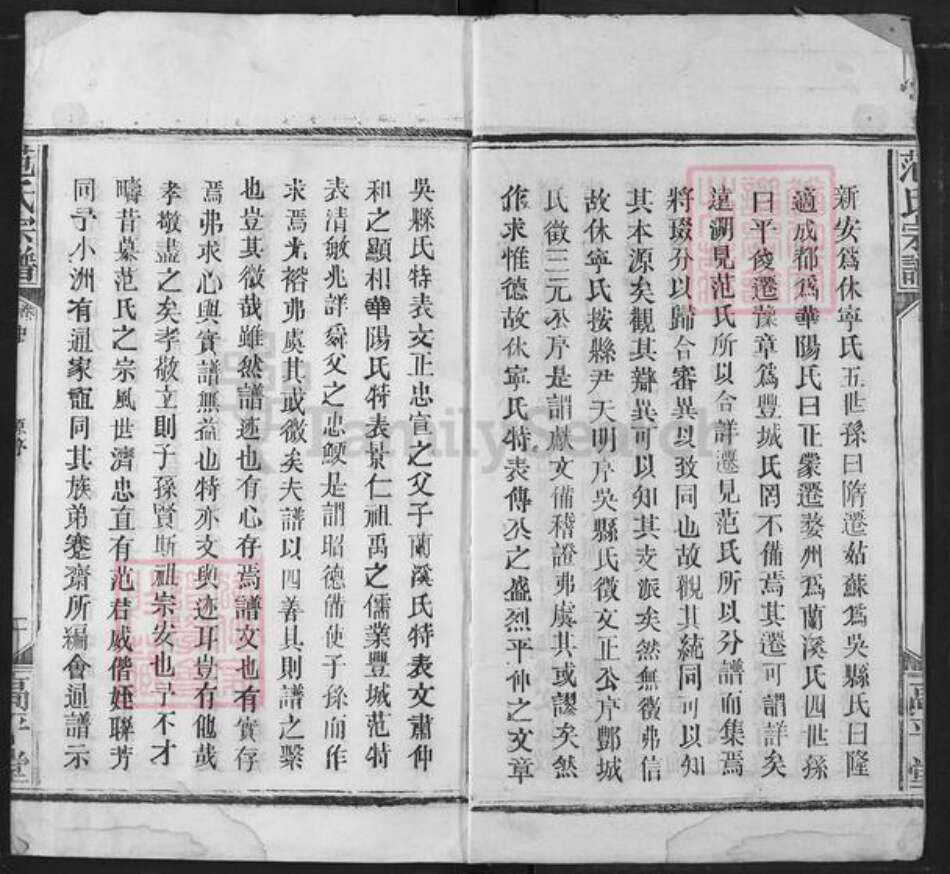 新安爲休寧氏五世孫曰隋遷姑蘇爲吳縣氏曰隆
適成都爲華陽氏曰正蒙遷婺州爲蘭溪氏四世孫
曰平俊遷豫章爲豐城氏罔不備焉其遷可謂詳矣
遠溯見范氏所以合詳遷見范氏所以分譜而集焉
將掇分以歸合審異以致同也故觀其統同可以知
其本源矣觀其辯異可以知其支派矣然無徵弗信
故休寧氏按縣尹天明序吳縣氏徵文正公序酆城
氏徵三元公序是謂獻文備稽證弗虞其或謬矣然
作求惟德故休寧氏特表傳公之盛烈平仲之文章
吳縣氏特表文正忠宣之父子蘭溪氏特表文肅仲
和之顯相華陽氏特表景仁祖禹之儒業豐城范特
表清敏兆詳舜父之忠鯁是謂昭德備使子孫而作
求焉光裕弗虞其或微矣夫譜以四善具則譜之繫
也豈其微哉雖然譜迹也有心存焉譜文也有實存
焉弗求心與實譜無益也特亦文與迹耳豈有他哉
孝敬盡之矣孝敬立則子孫賢斯祖宗安也予不才
疇昔慕范氏之宗風世濟忠直有范君威偕姪聯芳
同予小洲有通家寅同其族弟蹇齋所編會通譜示
范氏宗譜
卷
原序
高平堂
范氏宗譜
高平堂
FamilySearch